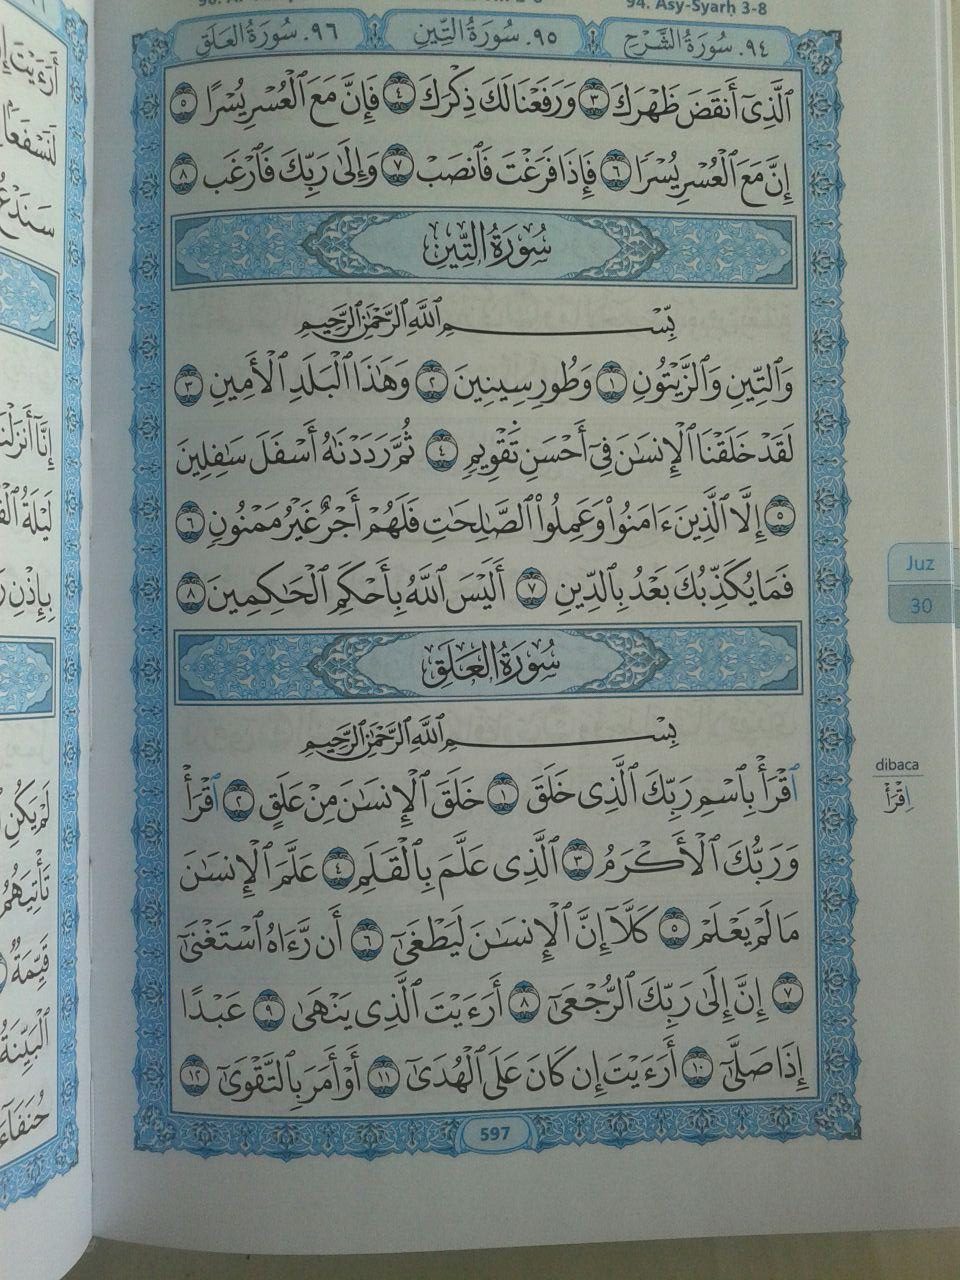 94. Asy-Syarḥ 3-8
٩٤. سُورَةُ الشَّرْحِ
٩٥. سُورَةُ التِّينِ
٩٦. سُورَةُ العَلَقِ
ٱلَّذِىٓ أَنقَضَ ظَهْرَكَ ٣ وَرَفَعْنَا لَكَ ذِكْرَكَ ٤ فَإِنَّ مَعَ ٱلْعُسْرِ يُسْرًا ٥
إِنَّ مَعَ ٱلْعُسْرِ يُسْرًا ٦ فَإِذَا فَرَغْتَ فَٱنصَبْ ٧ وَإِلَىٰ رَبِّكَ فَٱرْغَب ٨
سُورَةُ التِّينِ
بِسْمِ ٱللَّهِ ٱلرَّحْمَٰنِ ٱلرَّحِيمِ
وَٱلتِّينِ وَٱلزَّيْتُونِ ١ وَطُورِ سِينِينَ ٢ وَهَٰذَا ٱلْبَلَدِ ٱلْأَمِينِ ٣
لَقَدْ خَلَقْنَا ٱلْإِنسَٰنَ فِىٓ أَحْسَنِ تَقْوِيمٍ ٤ ثُمَّ رَدَدْنَٰهُ أَسْفَلَ سَٰفِلِينَ
٥ إِلَّا ٱلَّذِينَ ءَامَنُوا۟ وَعَمِلُوا۟ ٱلصَّٰلِحَٰتِ فَلَهُمْ أَجْرٌ غَيْرُ مَمْنُونٍ ٦
فَمَا يُكَذِّبُكَ بَعْدُ بِٱلدِّينِ ٧ أَلَيْسَ ٱللَّهُ بِأَحْكَمِ ٱلْحَٰكِمِينَ ٨
سُورَةُ العَلَقِ
بِسْمِ ٱللَّهِ ٱلرَّحْمَٰنِ ٱلرَّحِيمِ
ٱقْرَأْ بِٱسْمِ رَبِّكَ ٱلَّذِى خَلَقَ ١ خَلَقَ ٱلْإِنسَٰنَ مِنْ عَلَقٍ ٢ ٱقْرَأْ
وَرَبُّكَ ٱلْأَكْرَمُ ٣ ٱلَّذِى عَلَّمَ بِٱلْقَلَمِ ٤ عَلَّمَ ٱلْإِنسَٰنَ
مَا لَمْ يَعْلَمْ ٥ كَلَّآ إِنَّ ٱلْإِنسَٰنَ لَيَطْغَىٰٓ ٦ أَن رَّءَاهُ ٱسْتَغْنَىٰٓ
٧ إِنَّ إِلَىٰ رَبِّكَ ٱلرُّجْعَىٰٓ ٨ أَرَءَيْتَ ٱلَّذِى يَنْهَىٰ ٩ عَبْدًا
إِذَا صَلَّىٰٓ ١٠ أَرَءَيْتَ إِن كَانَ عَلَى ٱلْهُدَىٰٓ ١١ أَوْ أَمَرَ بِٱلتَّقْوَىٰٓ ١٢
597
Juz
30
dibaca
اِقْرَأْ